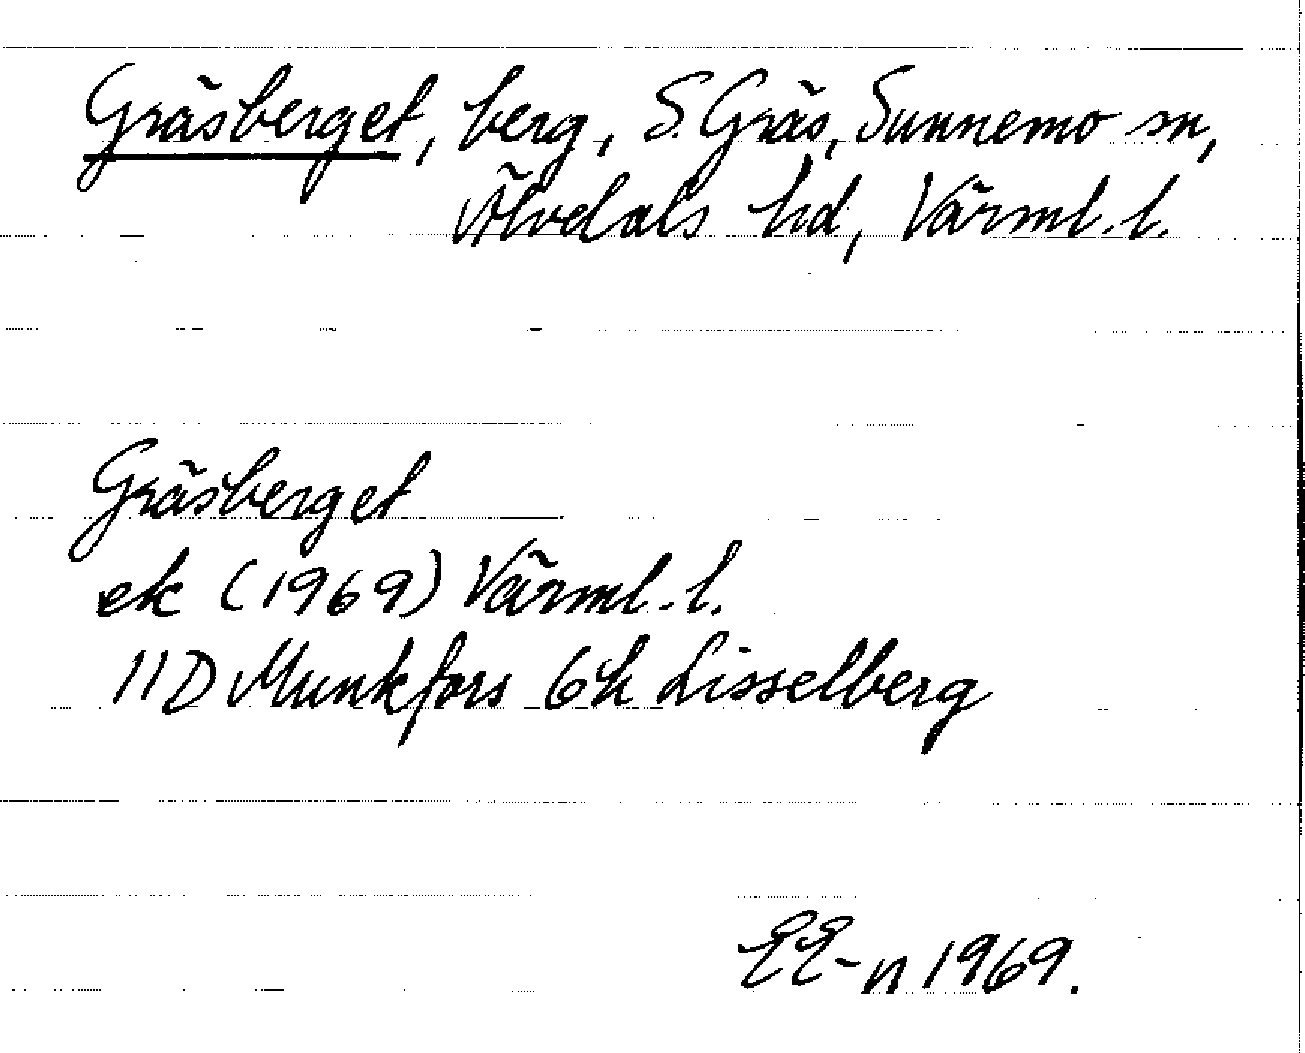 Gräsberget, berg, S. Gräs, Sunnemo sn,
Älvdals hd, Värml. l.
Gräsberget
ek (1969) Värml. l.
11D Munkfors 6h Lisselberg
EE-n 1969.